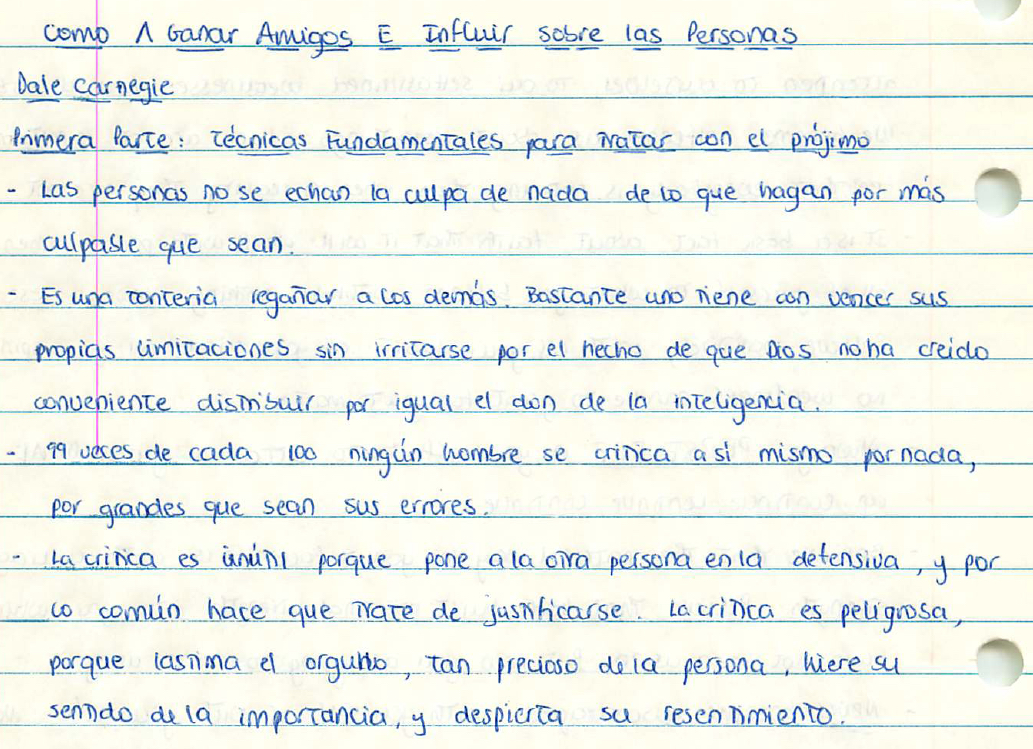 Como A Ganar Amigos E Influir sobre las Personas
Dale Carnegie
Primera Parte: Técnicas Fundamentales para Tratar con el prójimo
- Las personas no se echan la culpa de nada de lo que hagan por más
culpable que sean.
- Es una tontería regañar a los demás. Bastante uno tiene con vencer sus
propias limitaciones sin irritarse por el hecho de que Dios no ha creído
conveniente distribuir por igual el don de la inteligencia.
- 99 veces de cada 100 ningún hombre se critica a sí mismo por nada,
por grandes que sean sus errores.
- La crítica es inútil porque pone a la otra persona en la defensiva, y por
lo común hace que trate de justificarse. La crítica es peligrosa,
porque lastima el orgullo, tan precioso de la persona, hiere su
sentido de la importancia, y despierta su resentimiento.